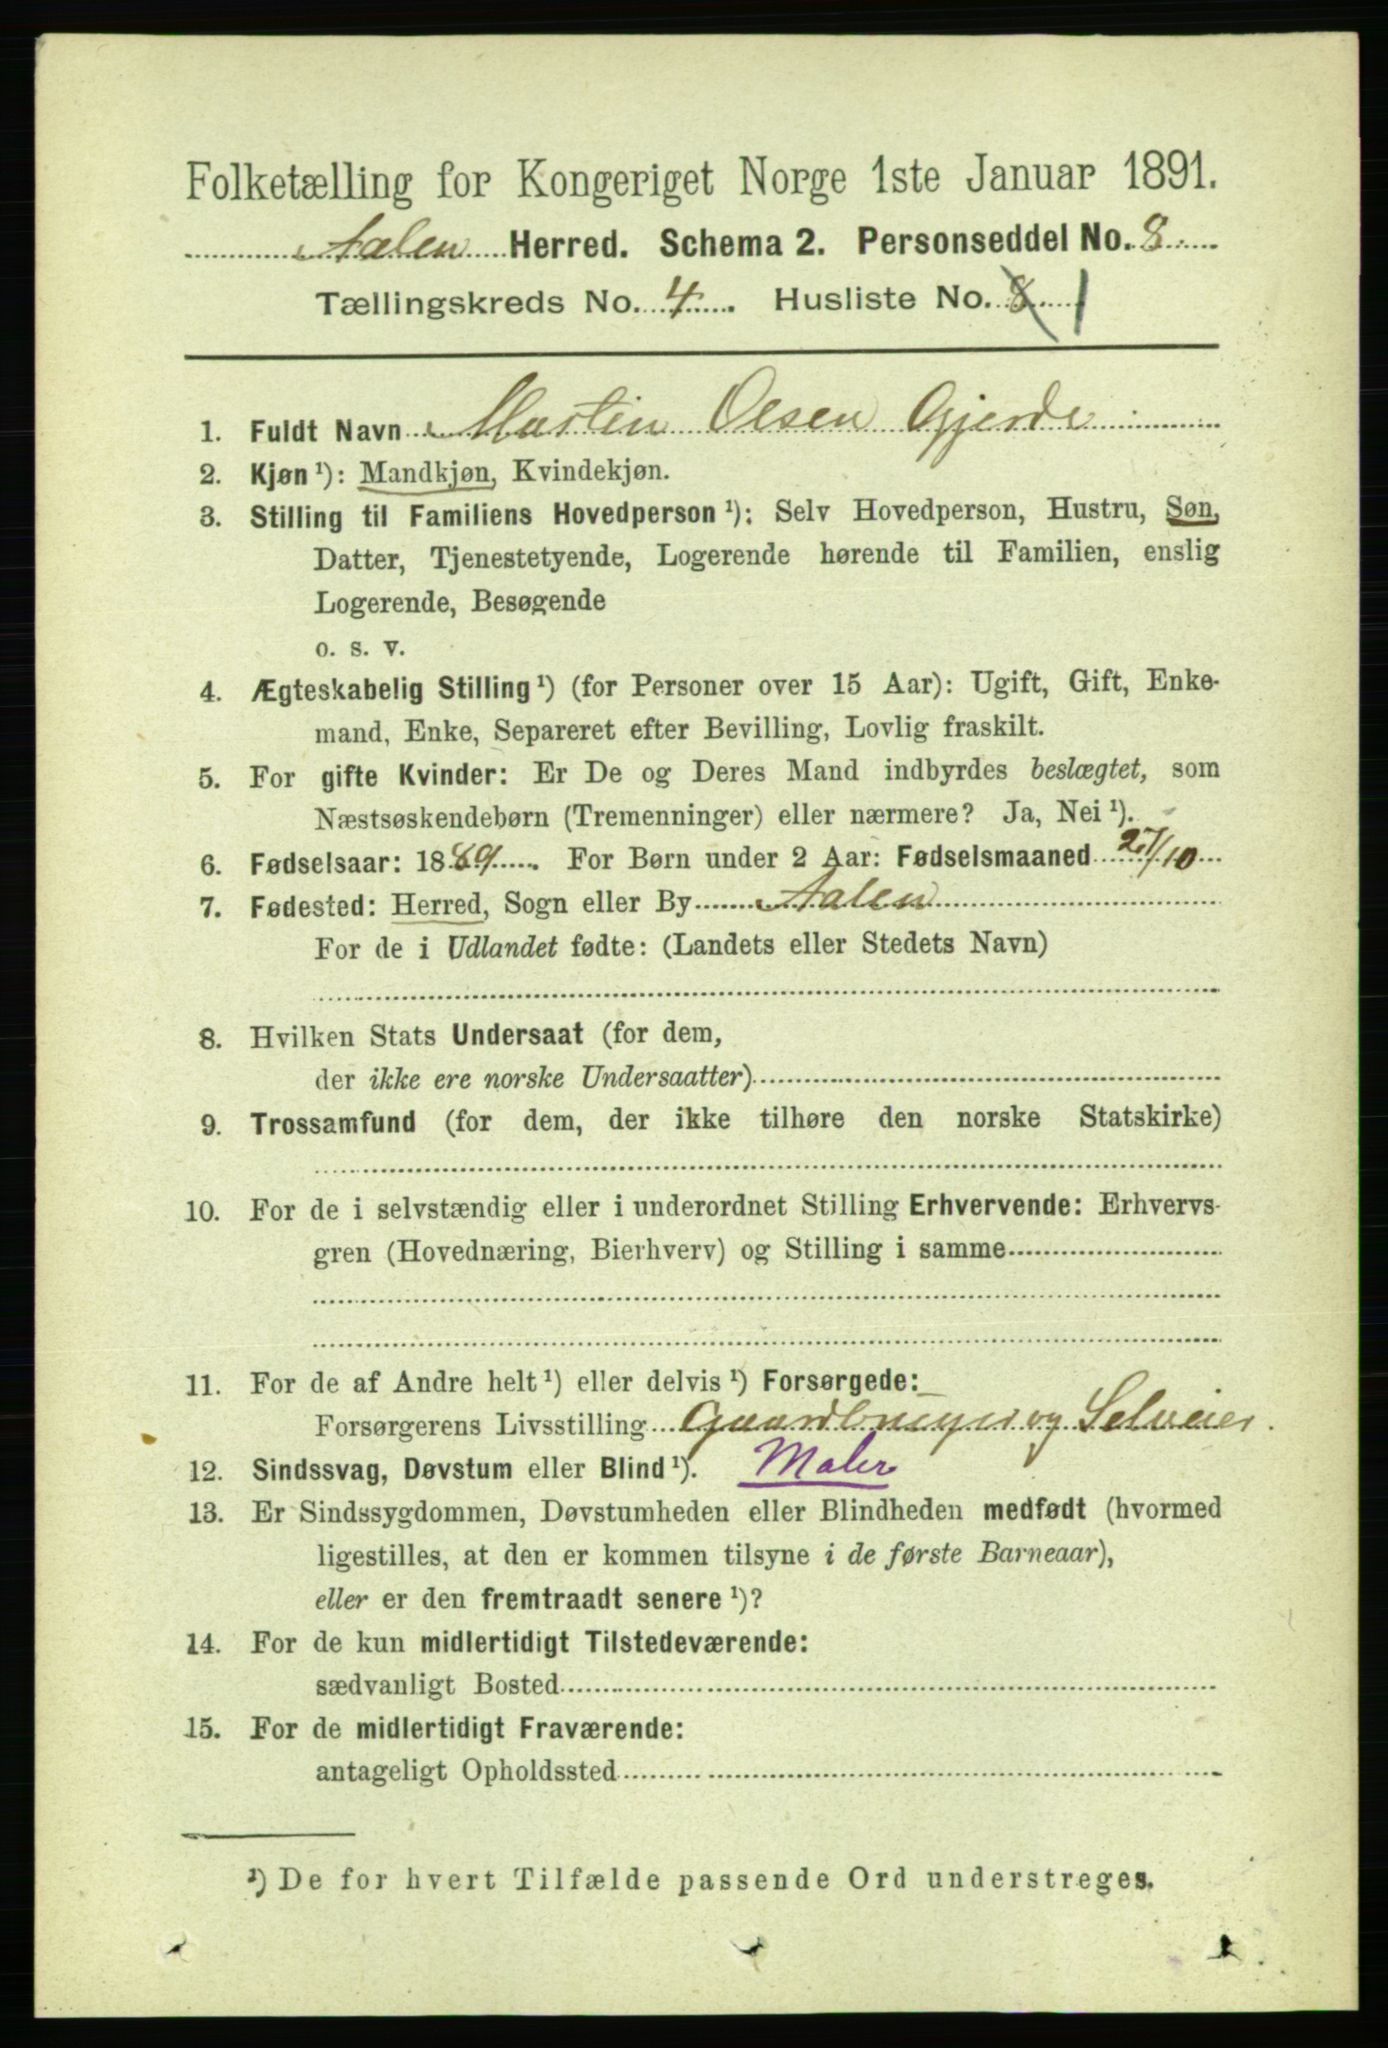 Folketælling for Kongeriget Norge 1ste Januar 1891.
Aalen Herred. Schema 2. Personseddel No. 8
Tællingskreds No. 4. Husliste No. 8 1
1. Fuldt Navn Martin Olsen Gjerde
2. Kjøn ¹): Mandkjøn, Kvindekjøn.
3. Stilling til Familiens Hovedperson ¹): Selv Hovedperson, Hustru, Søn,
Datter, Tjenestetyende, Logerende hørende til Familien, enslig
Logerende, Besøgende
o. s. v.
4. Ægteskabelig Stilling ¹) (for Personer over 15 Aar): Ugift, Gift, Enke-
mand, Enke, Separeret efter Bevilling, Lovlig fraskilt.
5. For gifte Kvinder: Er De og Deres Mand indbyrdes beslægtet, som
Næstsøskendebørn (Tremenninger) eller nærmere? Ja, Nei ¹).
6. Fødselsaar: 1889. For Børn under 2 Aar: Fødselsmaaned 27/10
7. Fødested: Herred, Sogn eller By Aalen
For de i Udlandet fødte: (Landets eller Stedets Navn)
8. Hvilken Stats Undersaat (for dem,
der ikke ere norske Undersaatter)
9. Trossamfund (for dem, der ikke tilhøre den norske Statskirke)
10. For de i selvstændig eller i underordnet Stilling Erhvervende: Erhvervs-
gren (Hovednæring, Bierhverv) og Stilling i samme
11. For de af Andre helt ¹) eller delvis ¹) Forsørgede:
Forsørgerens Livsstilling Gaardbruger og Selveier.
12. Sindssvag, Døvstum eller Blind ¹). Maler
13. Er Sindssygdommen, Døvstumheden eller Blindheden medfødt (hvormed
ligestilles, at den er kommen tilsyne i de første Barneaar),
eller er den fremtraadt senere ¹)?
14. For de kun midlertidigt Tilstedeværende:
sædvanligt Bosted
15. For de midlertidigt Fraværende:
antageligt Opholdssted
¹) De for hvert Tilfælde passende Ord understreges.